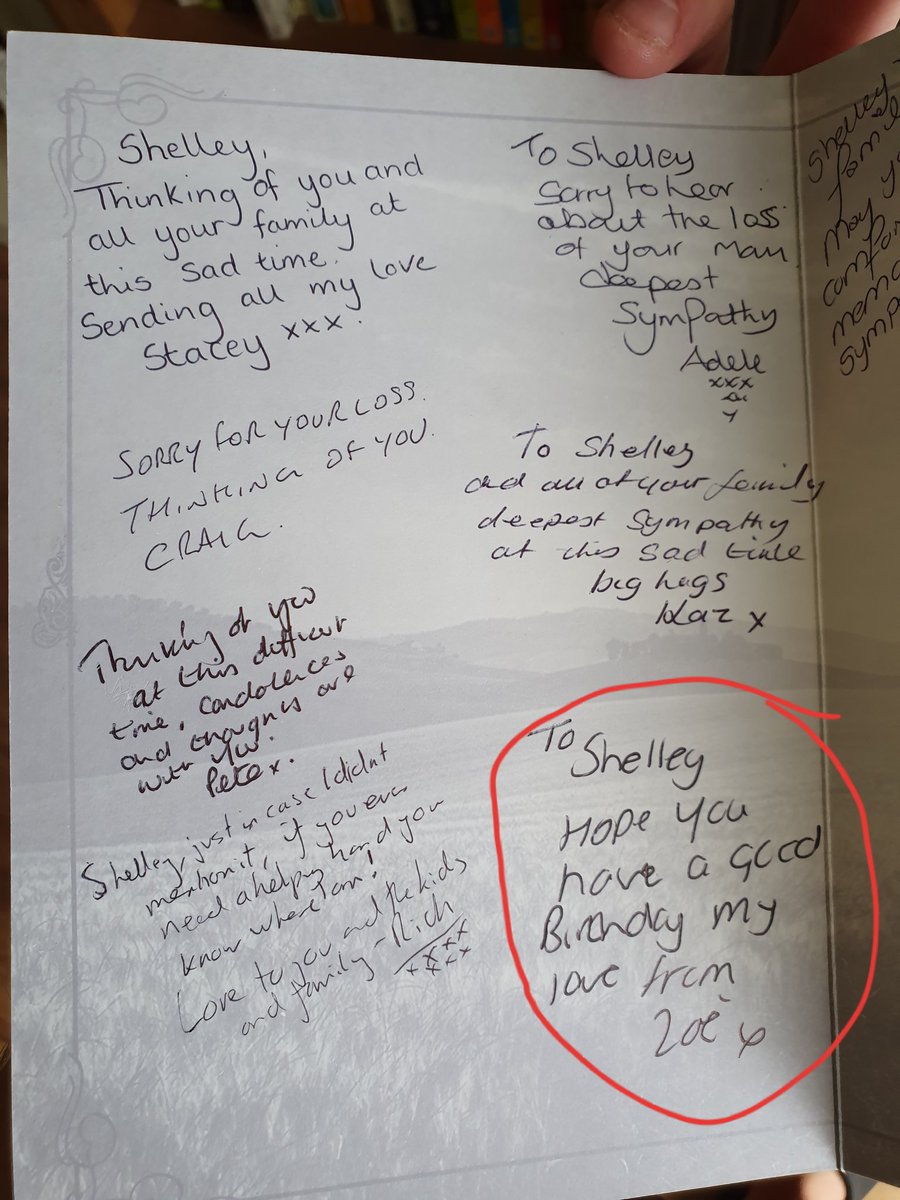 Shelley,
Thinking of you and
all your family at
this sad time.
Sending all my love
Stacey xxx.
SORRY FOR YOUR LOSS.
THINKING OF YOU.
CRAIG.
Thinking of you
at this difficult
time, condolences
and thoughts are
with you.
Pete x.
Shelley, just in case I didnt
mention it, if you ever
need a helping hand you
know where I am!
Love to you and the kids
and family - Rich
xxxx
xxxx
To Shelley
Sorry to hear
about the loss
of your Mam
deepest
Sympathy
Adele
xxx
To Shelley
and all of your family
deepest Sympathy
at this sad time
big hugs
Kaz x
To
Shelley
Hope you
have a good
Birthday my
love from
Zoë x
Shelley
May